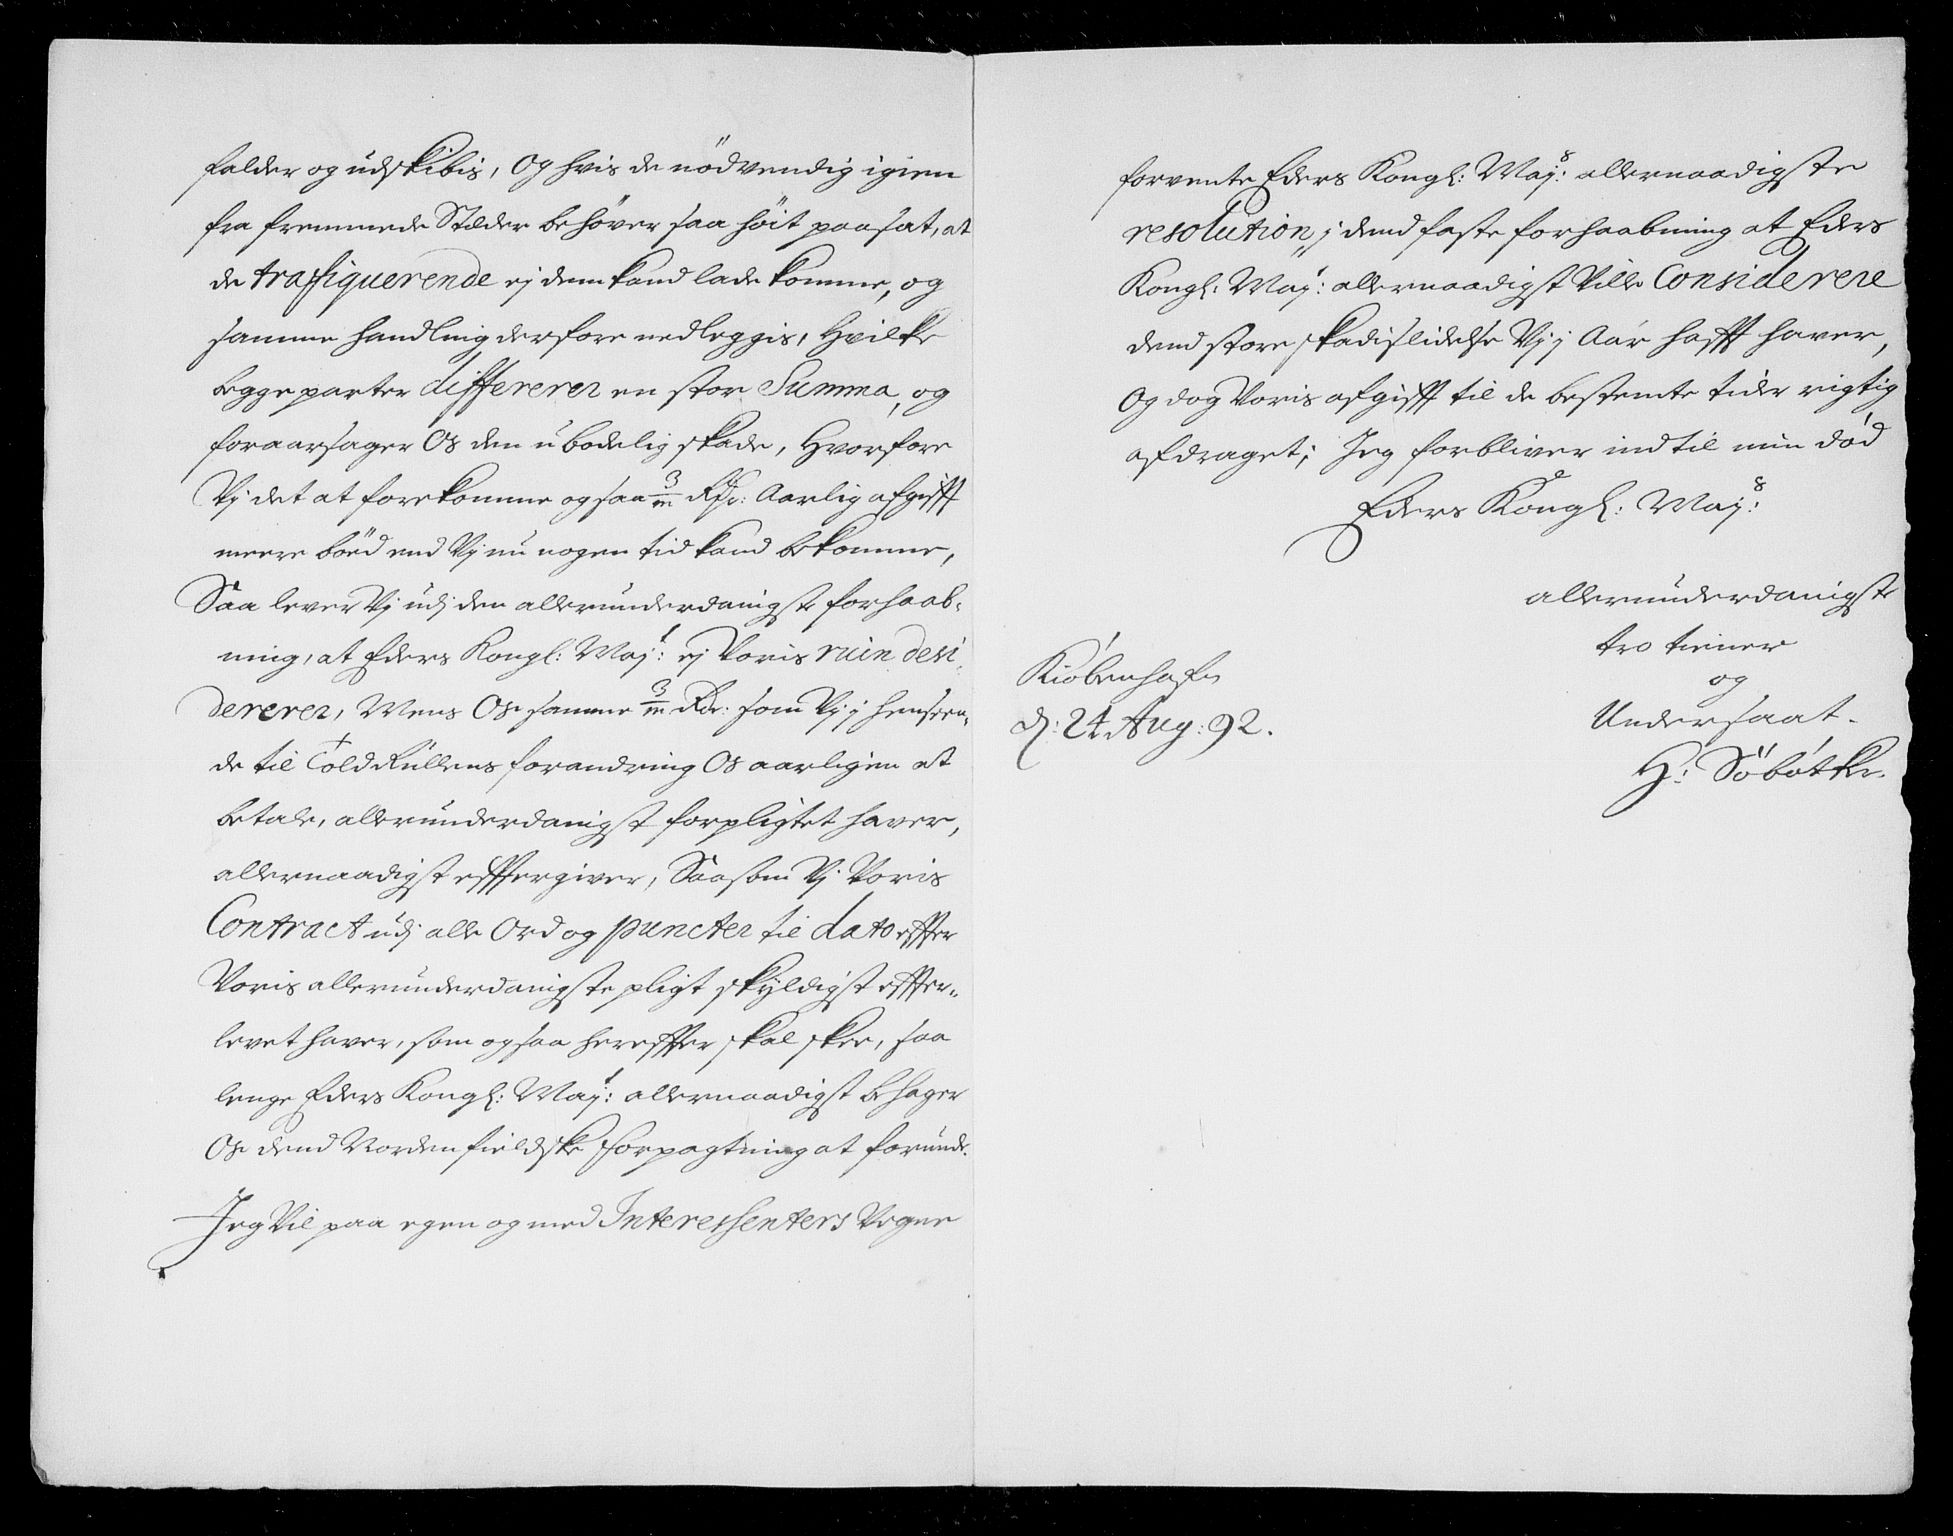 falder og udskibis, Og hvis de nödvendig igien
fra fremmede Stæder behöver saa höit paasat, at
de traffiquerende ej dem kand lade komme, og
samme handling derfore nedleggis, Hvilke
begge parter differerer en stor Summa, og
foraarsager Os den ubodelig skade, Hvorfore
Vj det at forekomme ogsaa 3/m Rdr: Aarlig afgifft
meere böed end Vj nu nogen tid kand bekomme,
Saa lever Vj udj den allerunderdanigste forhaab-
ning, at Eders Kongl: Majt: ej Voris ruin desi-
dererer, Mens Os samme 3/m Rdr: som Vj j henseen-
de til Told Rullens forandring Os aarligen at
betale, allerunderdanigst forpligtet haver,
allernaadigst efftergiver, Saasom Vj Voris
Contract udj alle Ord og puncter til dato effter
Voris allerunderdanigste pligt skyldigst effter-
levet haver, som ogsaa hereffter skal skee, saa
lenge Eders Kongl: Majt: allernaadigst behager
Os dend Nordenfieldske forpagtning at forunde.
Jeg Vil paa egen og med Interessenters Vegne
forvente Eders Kongl: Majs: allernaadigste
resolution, j dend faste forhaabning at Eders
Kongl: Majt: allernaadigst Ville Considerere
dend store skadislidelse Vj j Aar hafft haver,
Og dog Voris afgifft til de bestemte tider rigtig
afdraget; Jeg forbliver ind til min död
Eders Kongl: Majs:
allerunderdanigste
tro tiener
og
Undersaat.
H: Söbötker.
Kiöbenhafn
d: 24 Aug: 92.